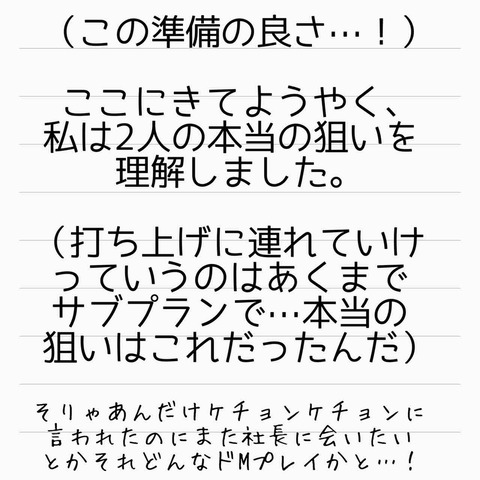 (この準備の良さ…！)
ここにきてようやく、
私は2人の本当の狙いを
理解しました。
(打ち上げに連れていけ
っていうのはあくまで
サブプランで…本当の
狙いはこれだったんだ)
そりゃあんだけケチョンケチョンに
言われたのにまた社長に会いたい
とかそれどんなドMプレイかと…！